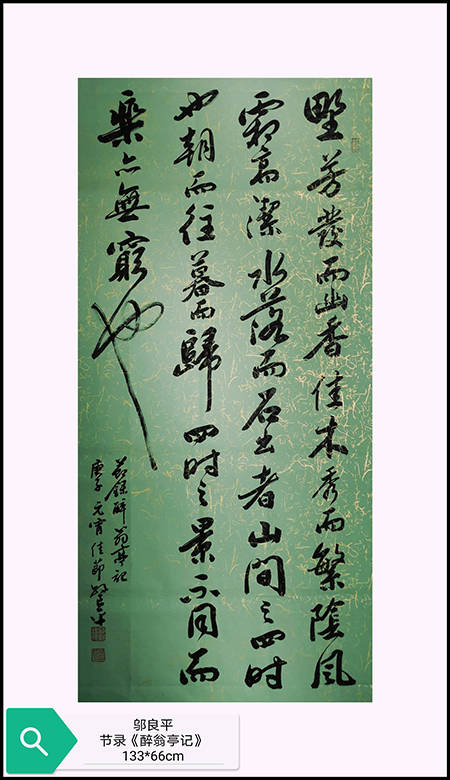 野芳發而幽香佳木秀而繁陰風
霜高潔水落而石出者山間之四時
也朝而往暮而歸四時之景不同而
樂亦無窮也
節錄醉翁亭記
庚子元宵佳節良平
邬良平
节录《醉翁亭记》
133*66cm